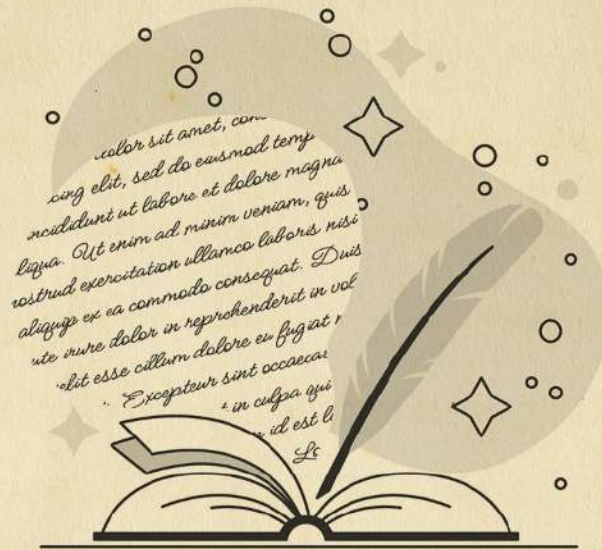 olor sit amet, con
cing elit, sed do eiusmod temp
ncididunt ut labore et dolore magna
liqua. Ut enim ad minim veniam, quis
nostrud exercitation ullamco laboris nisi
aliquip ex ea commodo consequat. Duis
ute irure dolor in reprehenderit in vol
elit esse cillum dolore eu fugiat
Excepteur sint occaecat
in culpa qui
id est l